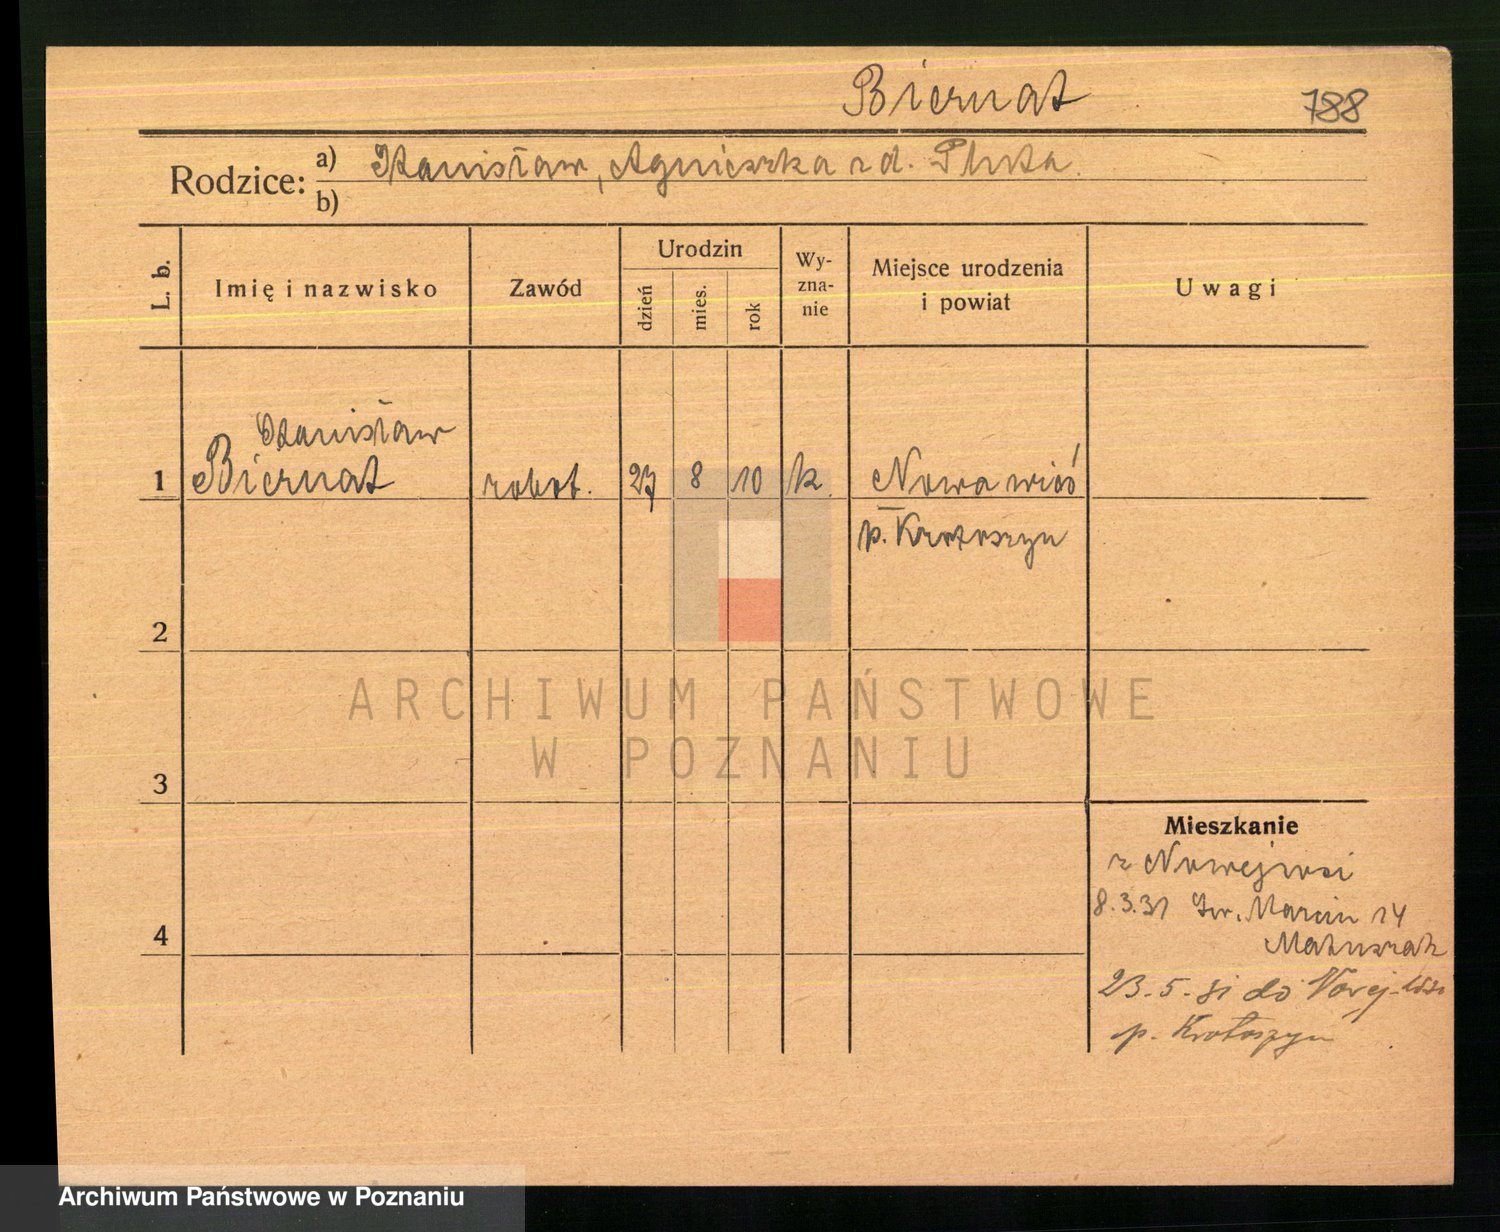 Biernat 788
Rodzice: a) Stanisław, Agnieszka zd. Pluta.
b)
L. b. Imię i nazwisko Zawód Urodzin dzień mies. rok Wy-zna-nie Miejsce urodzenia i powiat Uwagi
Stanisław
1 Biernat robot. 27 8 10 k. Nowa wieś
p. Krotoszyn
2
ARCHIWUM PAŃSTWOWE
W POZNANIU
3
Mieszkanie
z Nowejwsi
8.3.31 Św. Marcin 14
4 Matuszak
23.5.31 do
p. Krotoszyn
Archiwum Państwowe w Poznaniu